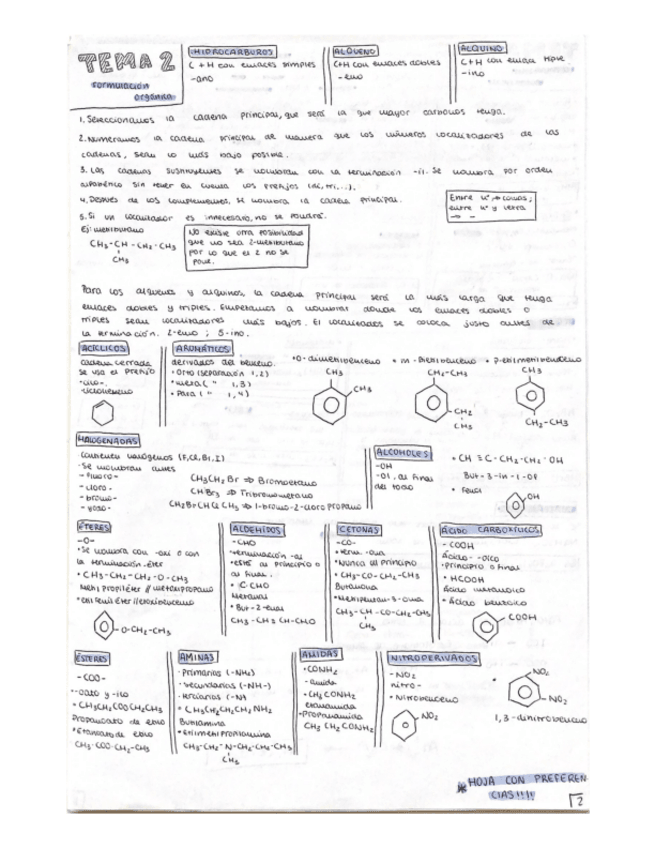 TEMA 2
formulación
orgánica
HIDROCARBUROS
C + H con enlaces simples
-ano
ALQUENO
C+H con enlaces dobles
- eno
ALQUINO
C+H con enlace triple
- ino
1. Seleccionamos la cadena principal, que será la que mayor carbonos tenga.
2. Numeramos la cadena principal de manera que los números localizadores de las
cadenas, sean lo más bajo posible.
3. Las cadenas sustituyentes se nombran con la terminación -il. Se nombra por orden
alfabético sin tener en cuenta los prefijos (di, tri,...).
4. Después de los complementos, se nombra la cadena principal.
5. Si un localizador es innecesario, no se pondrá.
Entre nº → comas;
entre nº y letra
→ -
Ej: metilbutano
CH3-CH-CH2-CH3
CH3
No existe otra posibilidad
que no sea 2-metilbutano
por lo que el 2 no se
pone.
Para los alquenos y alquinos, la cadena principal será la más larga que tenga
enlaces dobles y triples. Empezamos a nombrar donde los enlaces dobles o
triples sean localizadores más bajos. El localizador se coloca justo antes de
la terminación. 2-eno ; 5-ino.
ACÍCLICOS
cadena cerrada
se usa el prefijo
-ciclo-
ciclohexeno
AROMÁTICOS
derivados del benceno.
• Orto (separación 1,2)
• meta ( " 1,3)
• Para ( " 1,4)
• o-dimetilbenceno
CH3
CH3
• m-dietilbenceno
CH2-CH3
CH2
CH3
• p-etilmetilbenceno
CH3
CH2-CH3
HALOGENADAS
Contienen halógenos (F, Cl, Br, I)
• Se nombran antes
- fluoro-
- cloro-
- bromo-
- yodo-
CH3CH2Br ⇒ Bromoetano
CHBr3 ⇒ Tribromometano
CH2BrCHClCH3 ⇒ 1-bromo-2-cloropropano
ALCOHOLES
-OH
-ol al final
del todo
• CH≡C-CH2-CH2-OH
But-3-in-1-ol
• Fenol
OH
ÉTERES
-O-
• Se nombra con -oxi o con
la terminación -éter
• CH3-CH2-CH2-O-CH3
Metilpropiléter // metoxipropano
• etilfeniléter // etoxibenceno
O-CH2-CH3
ALDEHÍDOS
-CHO
-terminación -al
• esté al principio o
al final.
Metanal
• But-2-enal
CH3-CH=CH-CHO
CETONAS
-CO-
• term. -ona
• Nunca al principio
• CH3-CO-CH2-CH3
Butanona
• Metilpentan-3-ona
CH3-CH-CO-CH2-CH3
CH3
ÁCIDO CARBOXÍLICOS
- COOH
Ácido- -oico
• principio o final
• HCOOH
Ácido metanoico
• Ácido benzoico
COOH
ÉSTERES
-COO-
-oato y -ilo
• CH3CH2COOCH2CH3
Propanoato de etilo
• Etanoato de etilo
CH3-COO-CH2-CH3
AMINAS
- Primarias (-NH2)
- secundarias (-NH-)
- terciarias (-N-)
• CH3CH2CH2CH2NH2
Butilamina
• Etilmetilpropilamina
CH3-CH2-N-CH2-CH2-CH3
CH3
AMIDAS
• CONH2
- amida
• CH3CONH2
etanamida
• Propanamida
CH3CH2CONH2
NITRODERIVADOS
- NO2
nitro-
• Nitrobenceno
NO2
NO2
NO2
1,3-dinitrobenceno
* HOJA CON PREFEREN
CIAS!!!!
2